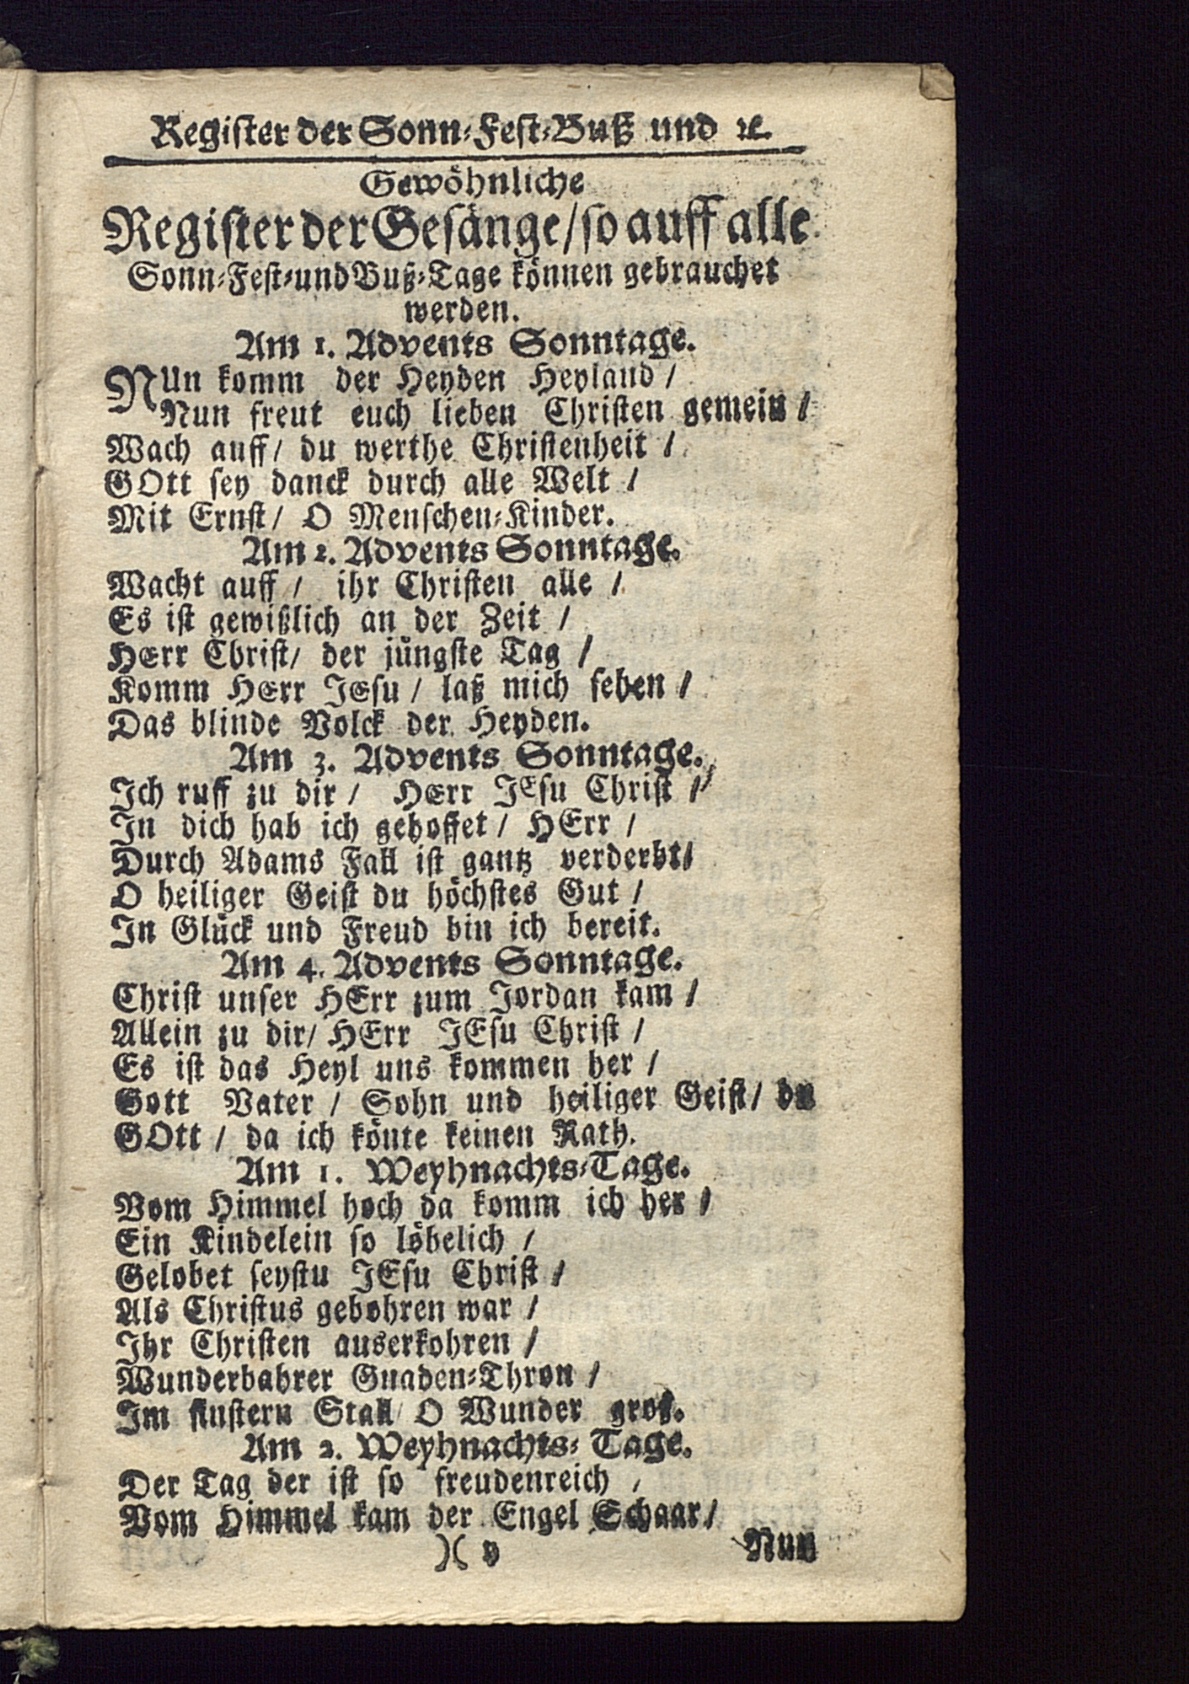 Register der Sonn-Fest-Buß und ꝛc.
Gewöhnliche
Register der Gesänge/ so auff alle
Sonn-Fest-und Buß-Tage können gebrauchet
werden.
Am 1. Advents Sonntage.
NUn komm der Heyden Heyland /
Nun freut euch lieben Christen gemein /
Wach auff/ du werthe Christenheit /
GOtt sey danck durch alle Welt /
Mit Ernst/ O Menschen-Kinder.
Am 2. Advents Sonntage.
Wacht auff / ihr Christen alle /
Es ist gewißlich an der Zeit /
HErr Christ/ der jüngste Tag /
Komm HErr JEsu / laß mich sehen /
Das blinde Volck der Heyden.
Am 3. Advents Sonntage.
Ich ruff zu dir / HErr JEsu Christ /
In dich hab ich gehoffet / HErr /
Durch Adams Fall ist gantz verderbt/
O heiliger Geist du höchstes Gut /
In Glück und Freud bin ich bereit.
Am 4. Advents Sonntage.
Christ unser HErr zum Jordan kam /
Allein zu dir/ HErr JEsu Christ /
Es ist das Heyl uns kommen her /
Gott Vater / Sohn und heiliger Geist/ du
GOtt / da ich könte keinen Rath.
Am 1. Weyhnachts-Tage.
Vom Himmel hoch da komm ich her /
Ein Kindelein so löbelich /
Gelobet seystu JEsu Christ /
Als Christus gebohren war /
Ihr Christen auserkohren /
Wunderbahrer Gnaden-Thron /
Im finstern Stall/ O Wunder groß.
Am 2. Weyhnachts-Tage.
Der Tag der ist so freudenreich /
Vom Himmel kam der Engel Schaar/
)( y Nun